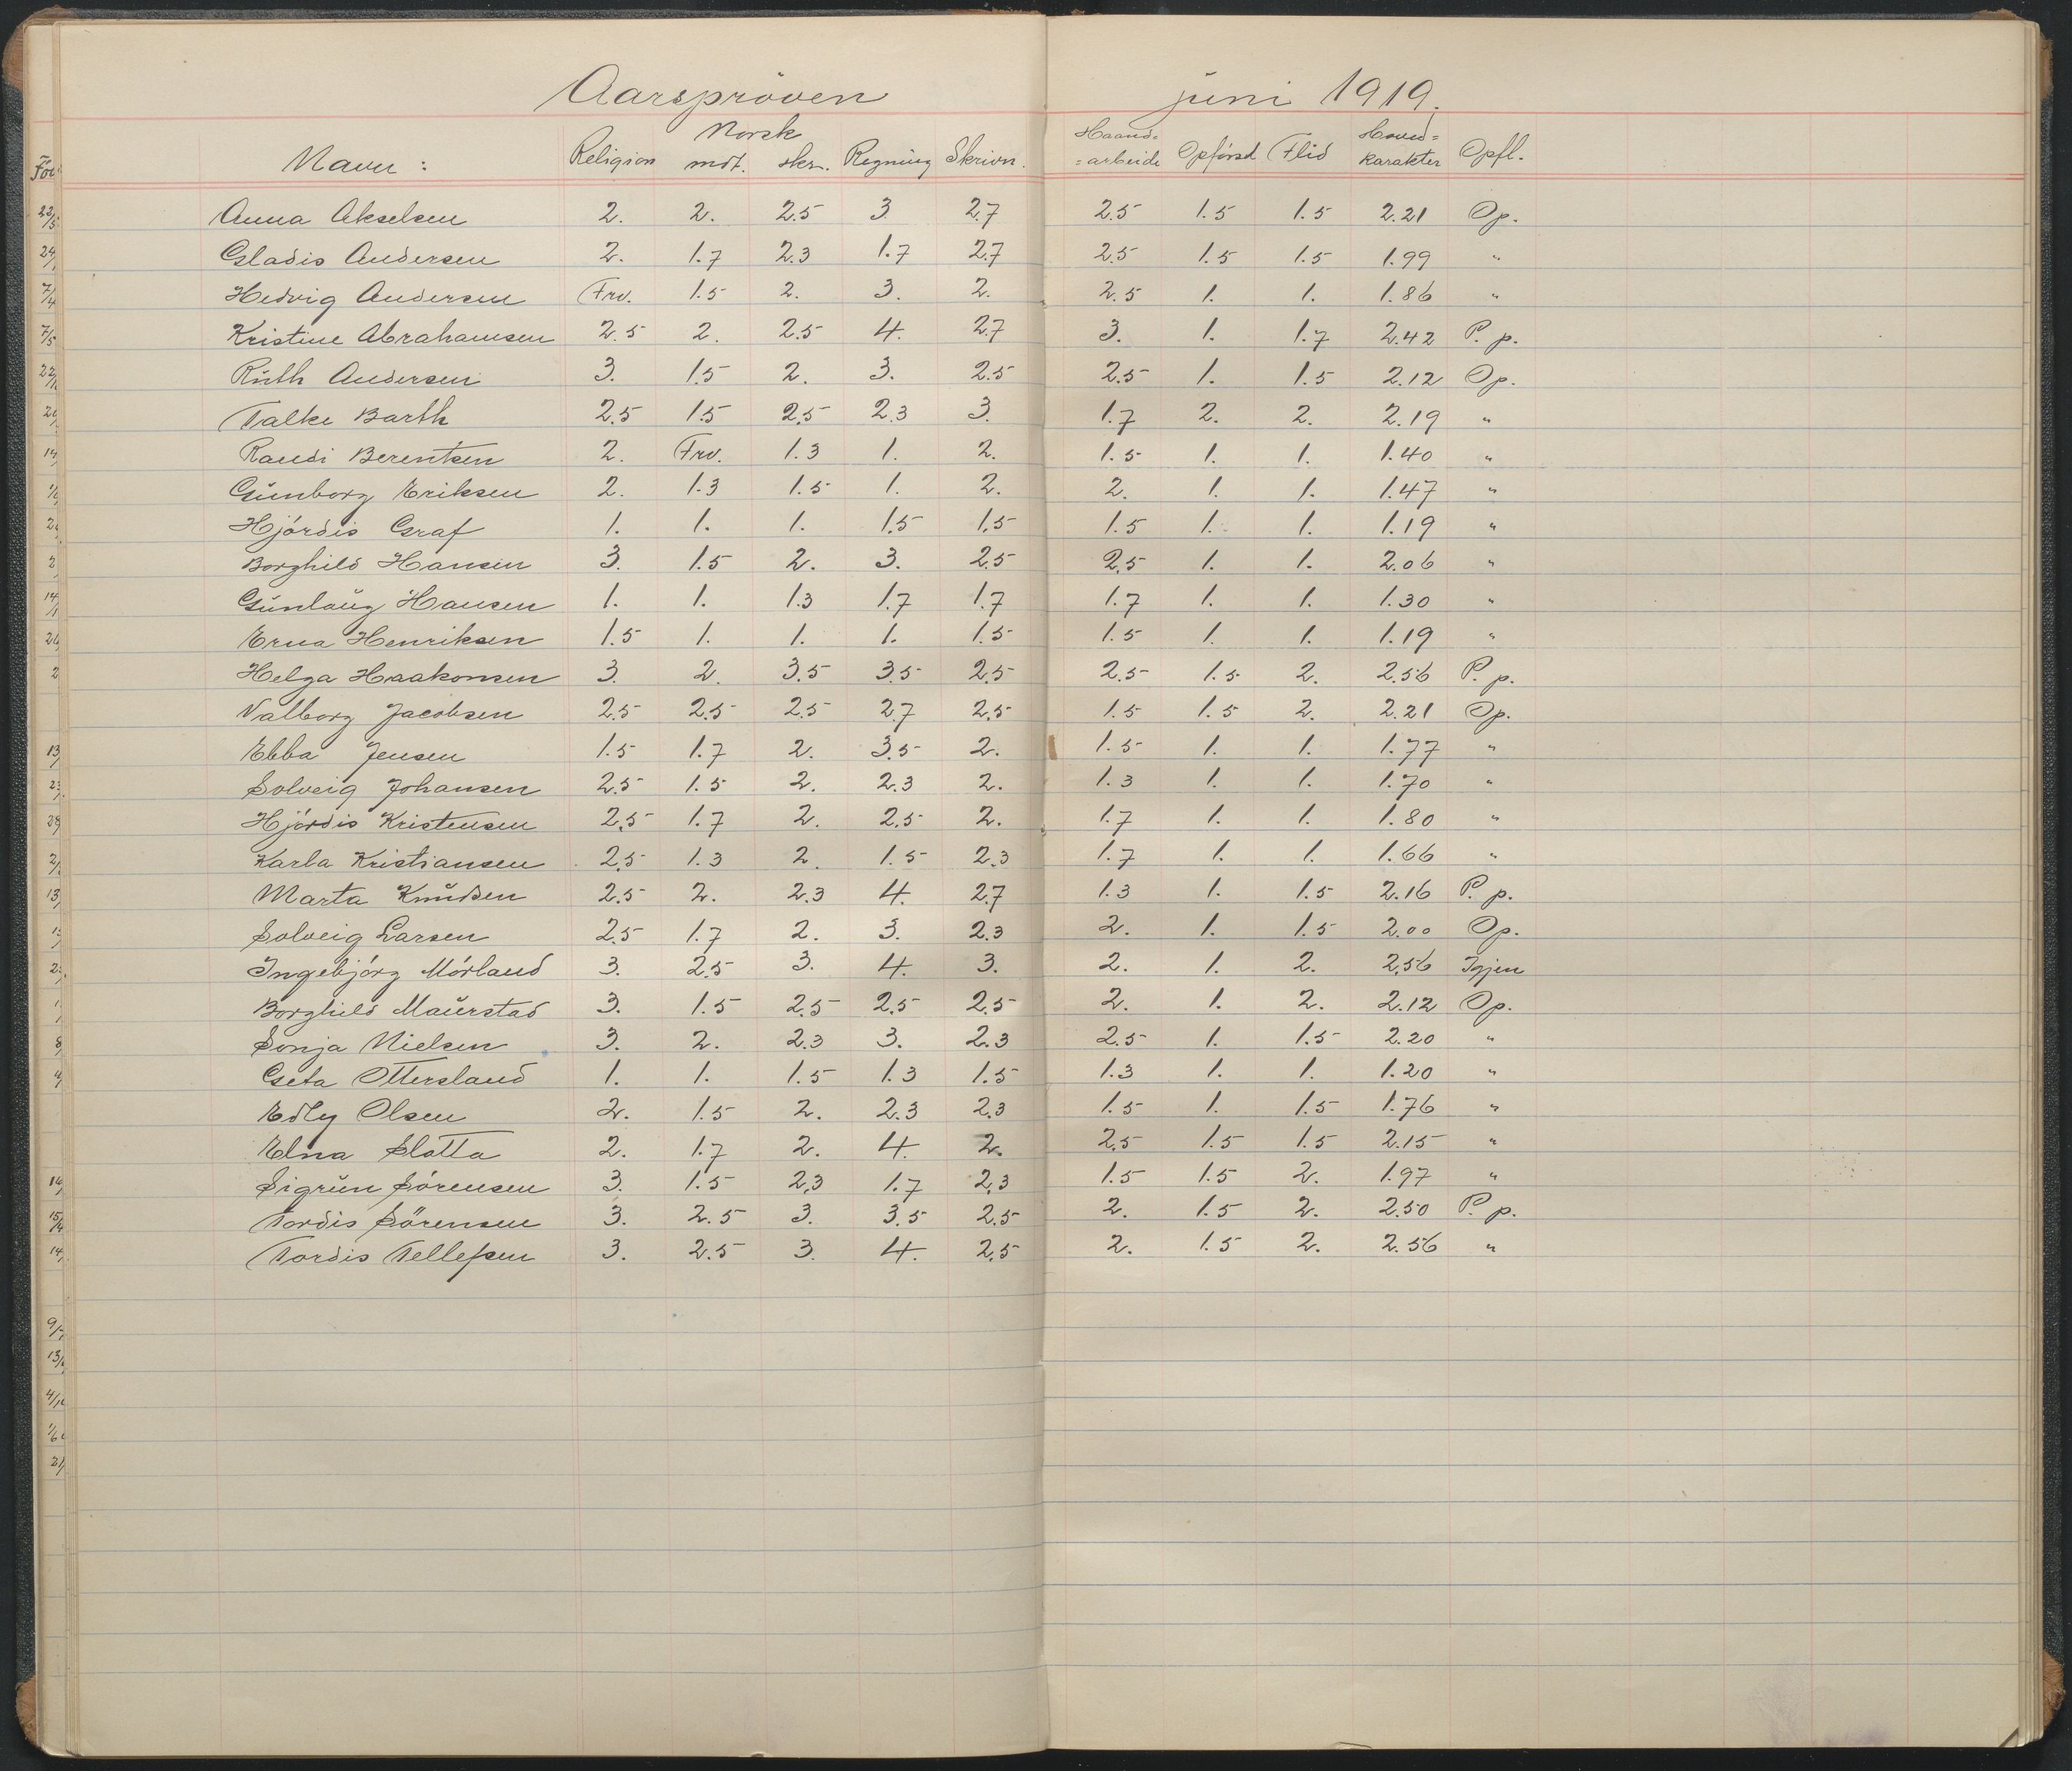 Aarspröven juni 1919.
Norsk Haand= Hoved=
Navn : Religion mdt. skr. Regning Skrivn. =arbeide Opförsel Flid karakter Opfl.
Anna Akselsen 2. 2. 2.5 3. 2.7 2.5 1.5 1.5 2.21 Op.
Gladis Andersen 2. 1.7 2.3 1.7 2.7 2.5 1.5 1.5 1.99 "
Hedvig Andersen Frv. 1.5 2. 3. 2. 2.5 1. 1. 1.86 "
Kristine Abrahamsen 2.5 2. 2.5 4. 2.7 3. 1. 1.7 2.42 P. p.
Ruth Andersen 3. 1.5 2. 3. 2.5 2.5 1. 1.5 2.12 Op.
Talke Barth 2.5 1.5 2.5 2.3 3. 1.7 2. 2. 2.19 "
Randi Berentsen 2. Frv. 1.3 1. 2. 1.5 1. 1. 1.40 "
Gunborg Eriksen 2. 1.3 1.5 1. 2. 2. 1. 1. 1.47 "
Hjördis Graf 1. 1. 1. 1.5 1.5 1.5 1. 1. 1.19 "
Borghild Hansen 3. 1.5 2. 3. 2.5 2.5 1. 1. 2.06 "
Gunlaug Hansen 1. 1. 1.3 1.7 1.7 1.7 1. 1. 1.30 "
Erna Henriksen 1.5 1. 1. 1. 1.5 1.5 1. 1. 1.19 "
Helga Haakonsen 3. 2. 3.5 3.5 2.5 2.5 1.5 2. 2.56 P. p.
Valborg Jacobsen 2.5 2.5 2.5 2.7 2.5 1.5 1.5 2. 2.21 Op.
Ebba Jensen 1.5 1.7 2. 3.5 2. 1.5 1. 1. 1.77 "
Solveig Johansen 2.5 1.5 2. 2.3 2. 1.3 1. 1. 1.70 "
Hjördis Kristensen 2.5 1.7 2. 2.5 2. 1.7 1. 1. 1.80 "
Karla Kristiansen 2.5 1.3 2. 1.5 2.3 1.7 1. 1. 1.66 "
Marta Knudsen 2.5 2. 2.3 4. 2.7 1.3 1. 1.5 2.16 P. p.
Solveig Larsen 2.5 1.7 2. 3. 2.3 2. 1. 1.5 2.00 Op.
Ingebjörg Mörland 3. 2.5 3. 4. 3. 2. 1. 2. 2.56 Igjen
Borghild Maurstad 3. 1.5 2.5 2.5 2.5 2. 1. 2. 2.12 Op.
Sonja Nielsen 3. 2. 2.3 3. 2.3 2.5 1. 1.5 2.20 "
Geta Ottersland 1. 1. 1.5 1.3 1.5 1.3 1. 1. 1.20 "
Edly Olsen 2. 1.5 2. 2.3 2.3 1.5 1. 1.5 1.76 "
Elna Slotta 2. 1.7 2. 4. 2. 2.5 1.5 1.5 2.15 "
Sigrun Sörensen 3. 1.5 2.3 1.7 2.3 1.5 1.5 2. 1.97 "
Tordis Sörensen 3. 2.5 3. 3.5 2.5 2. 1.5 2. 2.50 P. p.
Tordis Tellefsen 3. 2.5 3. 4. 2.5 2. 1.5 2. 2.56 "